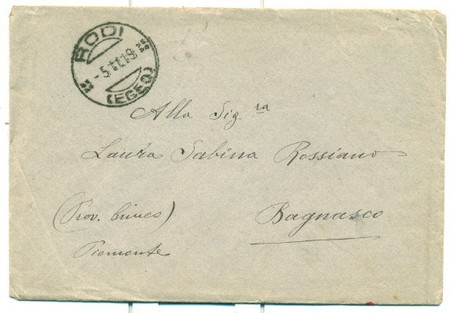 RODI
-5.11.19
(EGEO)
Alla Sig.ra
Laura Sabina Rossiano
(Prov. Cuneo) Bagnasco
Piemonte